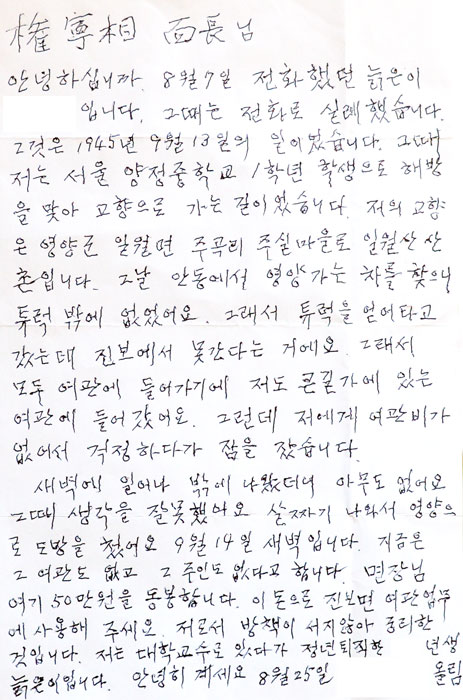 權寧相 面長님
안녕하십니까. 8월7일 전화했던 늙은이
입니다. 그때는 전화로 실례했습니다.
그것은 1945년 9월 13일의 일이었습니다. 그때
저는 서울 양정중학교 1학년 학생으로 해방
을 맞아 고향으로 가는 길이었습니다. 저의 고향
은 영양군 일월면 주곡리 주실마을로 일월산 산
촌입니다. 그날 안동에서 영양가는 차를 찾으니
튜럭 밖에 없었어요. 그래서 튜럭을 얻어타고
갔는데 진보에서 못간다는 거에요. 그래서
모두 여관에 들어가기에 저도 큰길가에 있는
여관에 들어 갔어요. 그런데 저에게 여관비가
없어서 걱정하다가 잠을 잤습니다.
새벽에 일어나 밖에 나왔더니 아무도 없어요
그때 생각을 잘못했어요 살짜기 나와서 영양으
로 도망을 쳤어요 9월 14일 새벽입니다. 지금은
그 여관도 없고 그 주인도 없다고 합니다. 면장님
여기 50만원을 동봉합니다. 이 돈으로 진보면 여관업무
에 사용해 주세요. 저로서 방책이 서지않아 궁리한
것입니다. 저는 대학교수로 있다가 정년퇴직한 년생
늙은이입니다. 안녕히 계세요 8월 25일 올림